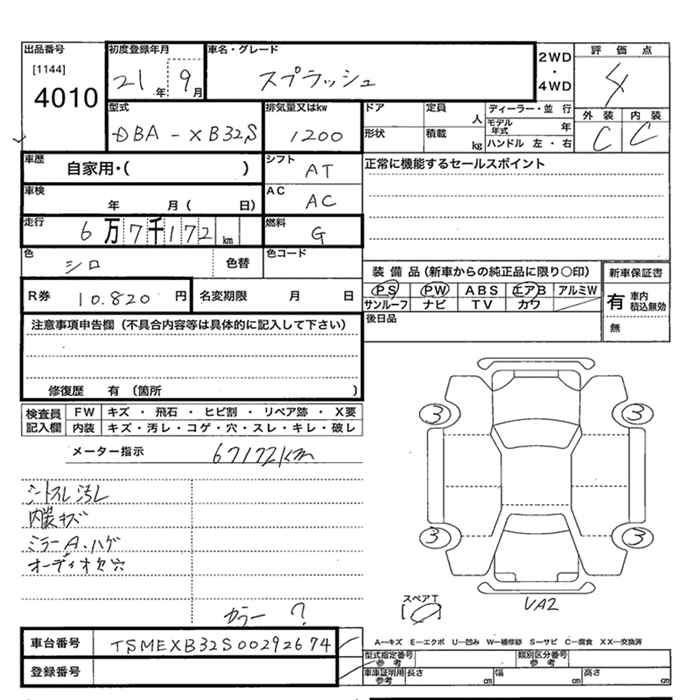 出品番号 初度登録年月 車名・グレード 2WD・4WD 評価点
[1144]
4010 21年 9月 スプラッシュ 4
型式 排気量又はkw ドア 定員 人 ディーラー・並行 外装 内装
DBA-XB32S 1200 形状 積載 kg モデル年式 年 C C
ハンドル 左・右
車歴 自家用・( ) シフト AT 正常に機能するセールスポイント
車検 年 月( 日) AC AC
走行 6万7千172km 燃料 G
色 シロ 色替 色コード
装備品(新車からの純正品に限り○印) 新車保証書
R券 10.820円 名変期限 月 日 PS PW ABS エアB アルミW 有 車内積込無効
サンルーフ ナビ TV カワ
注意事項申告欄(不具合内容等は具体的に記入して下さい) 後日品 無
修復歴 有 (箇所 )
検査員記入欄 FW キズ ・ 飛石 ・ ヒビ割 ・ リペア跡 ・ X要
内装 キズ・汚レ・コゲ・穴・スレ・キレ・破レ
メーター指示 67172km
3 3
シートスレ汚レ
内装キズ
ミラーA・ハゲ
オーディオ欠穴
3 3
カラー ?
スペアT
VA2
車台番号 TSMEXB32S00292674
A-キズ E-エクボ U-凹み W-補修跡 S-サビ C-腐食 XX-交換済
型式指定番号 参考 類別区分番号 参考
登録番号 車庫証明用 参考 長さ cm 幅 cm 高さ cm